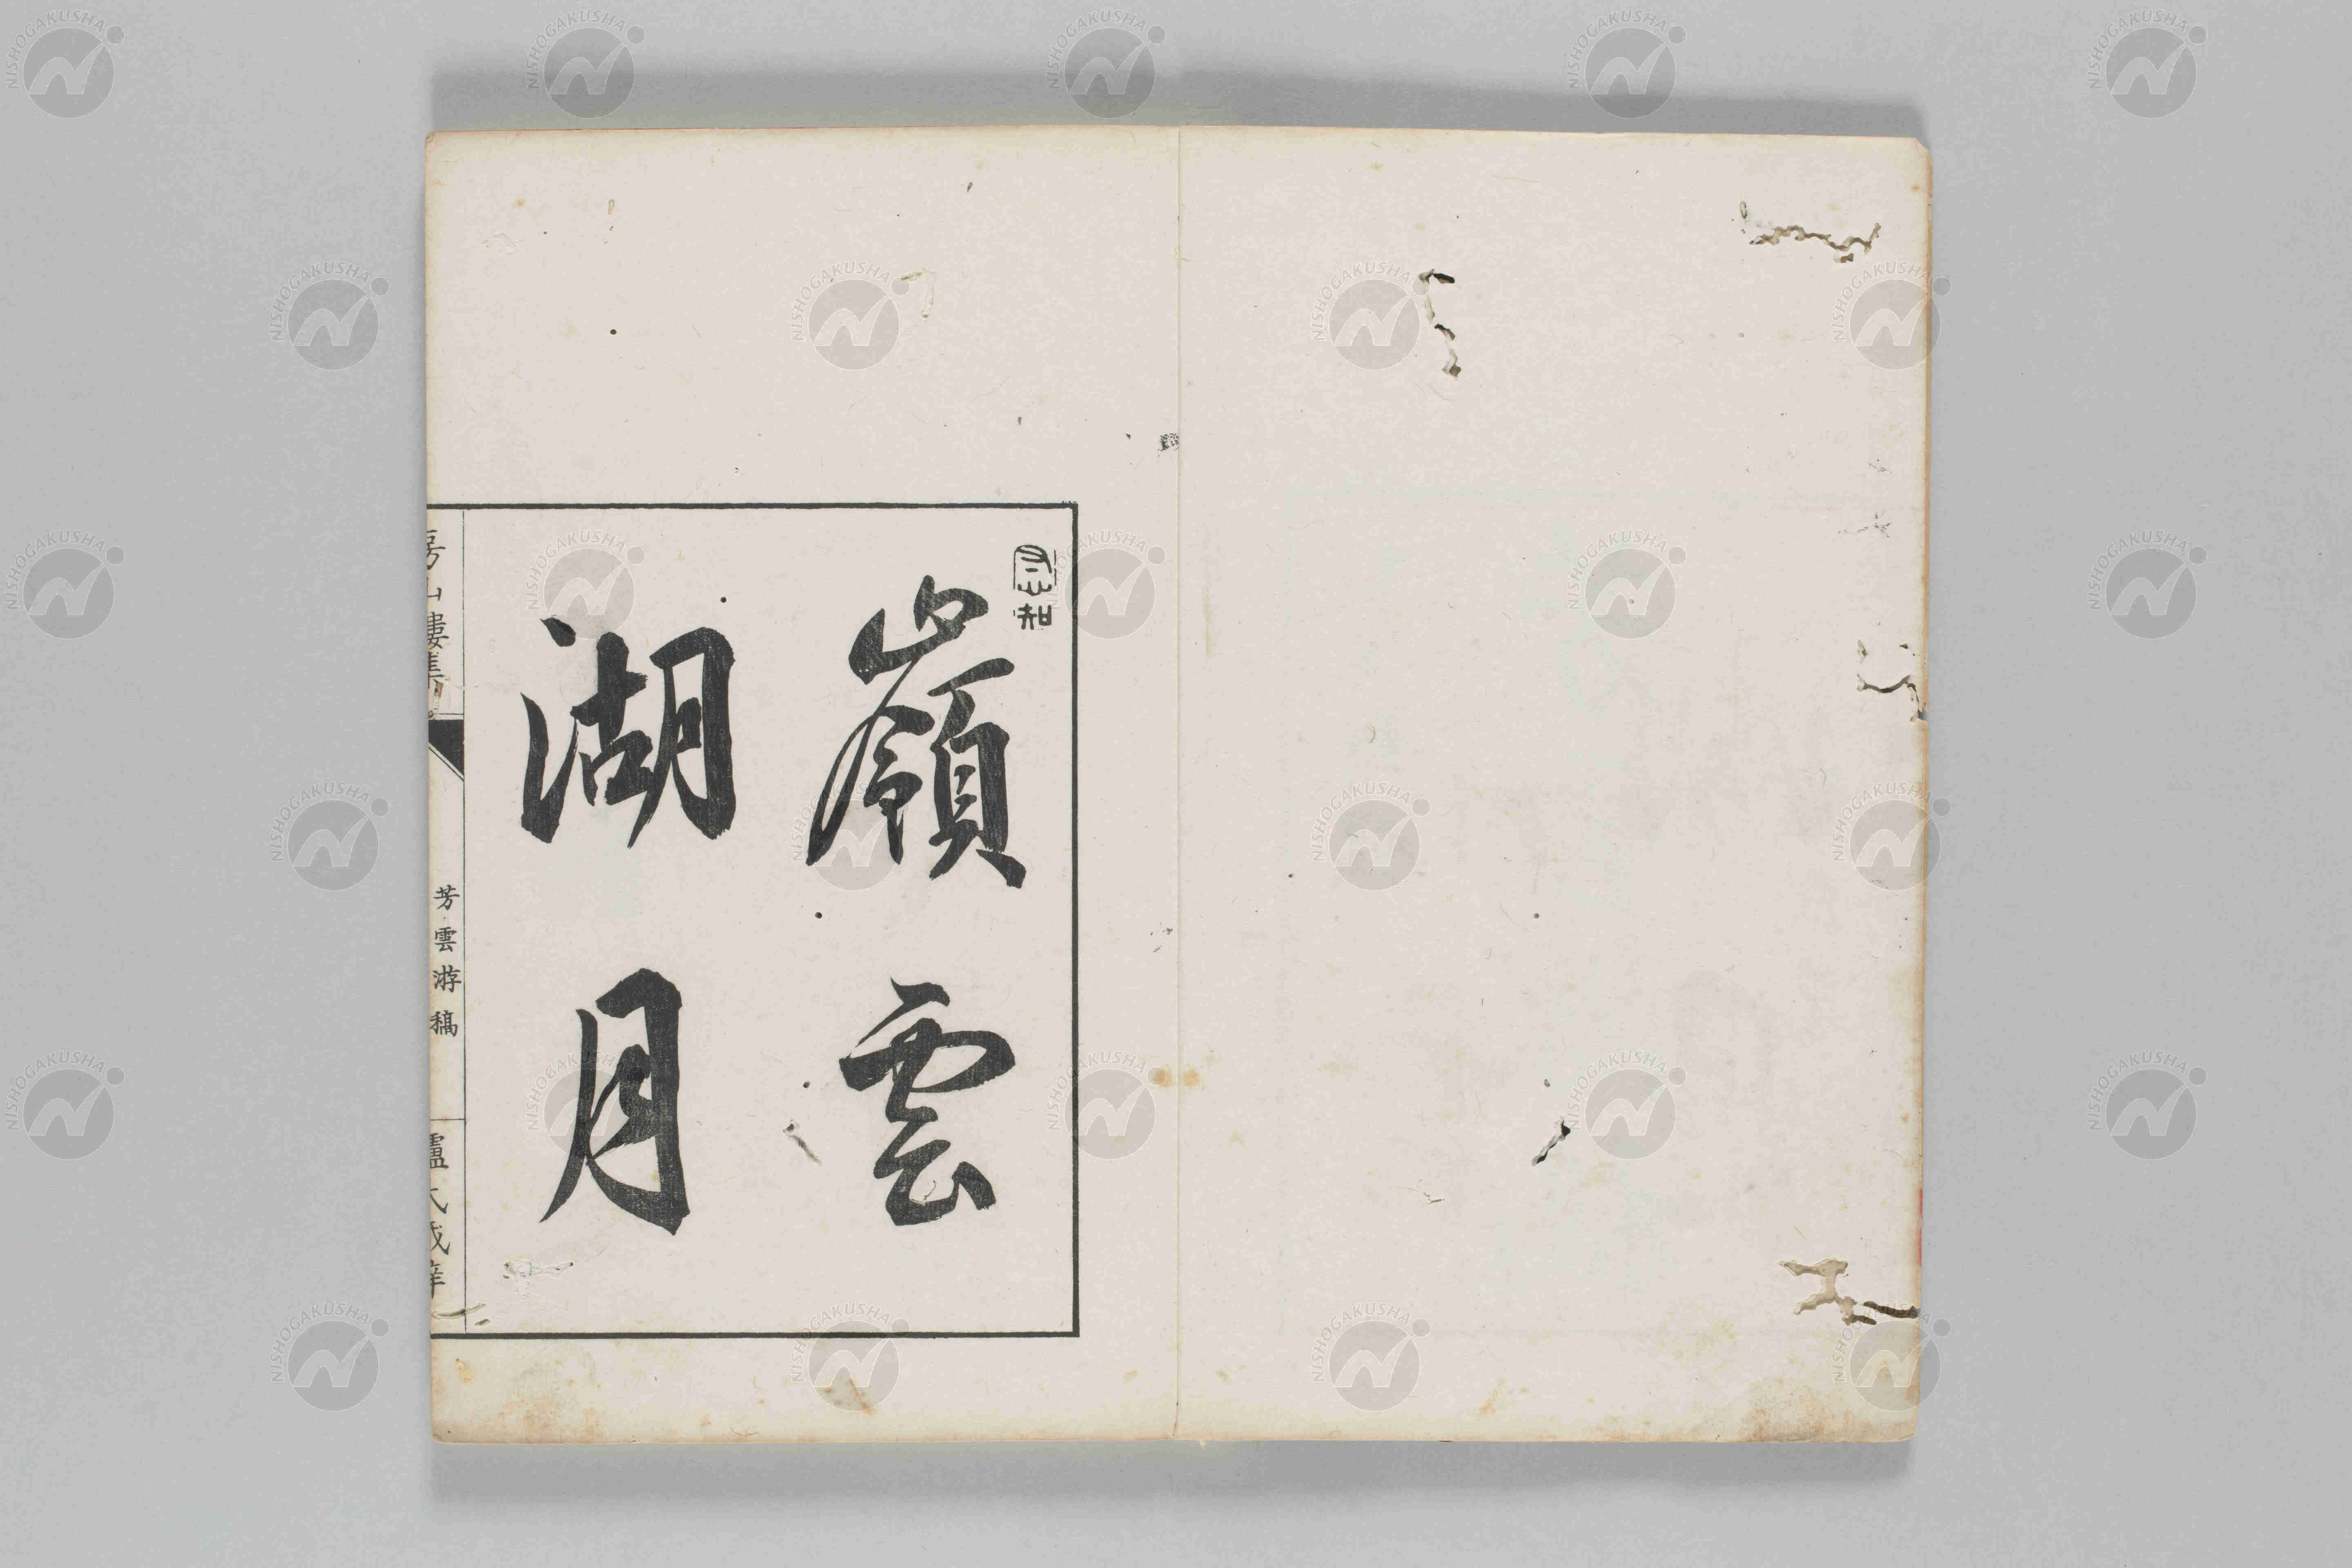 嶺雲
湖月
房山樓集
芳雲游稿
NISHOGAKUSHA